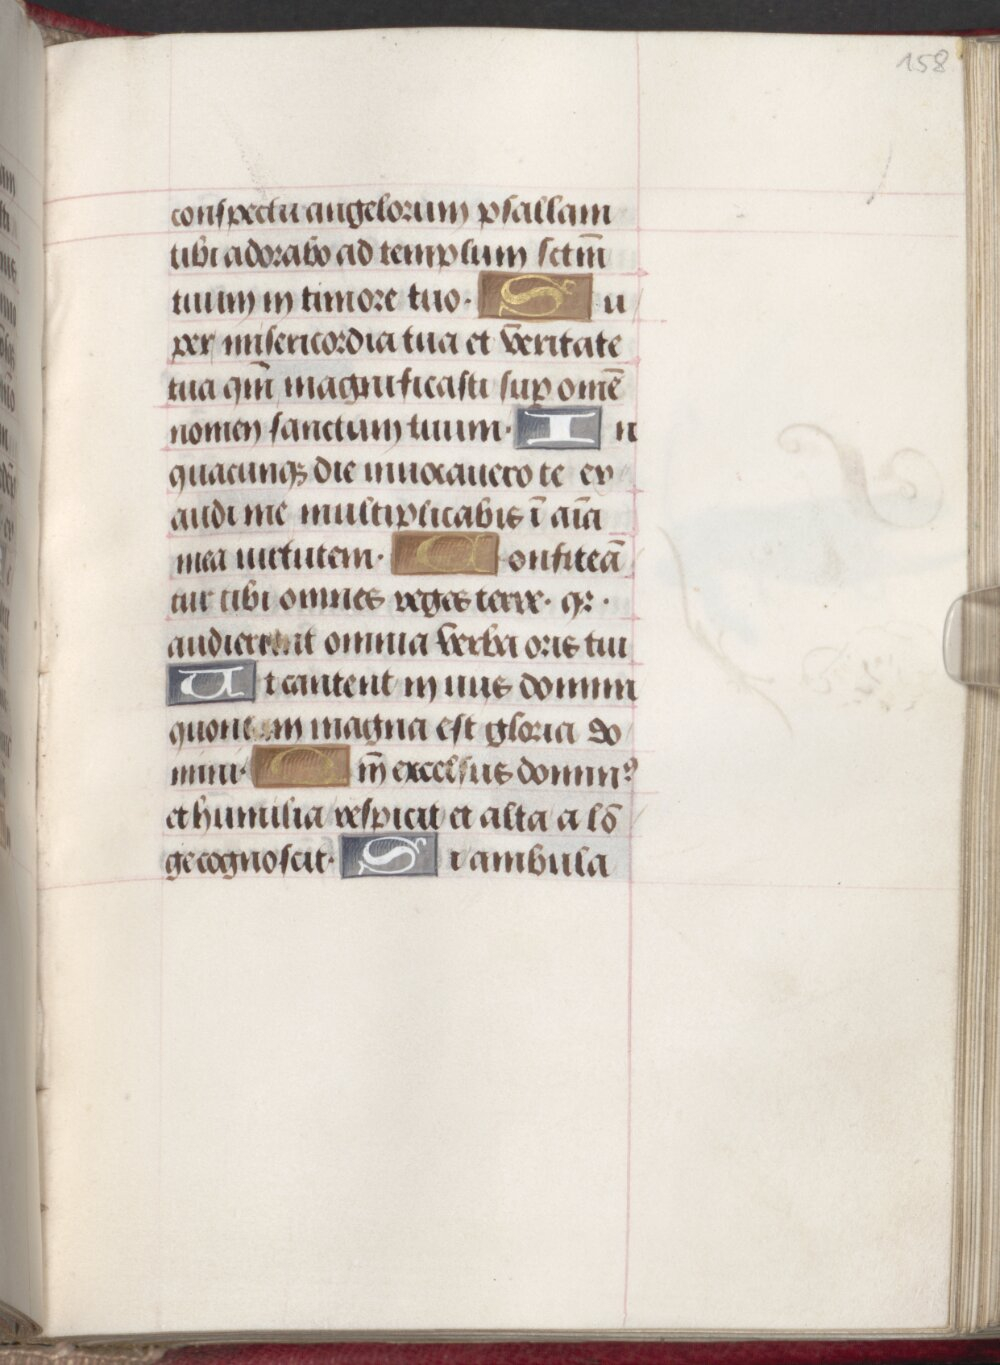 158
conspectu angelorum psallam
tibi adorabo ad templum sctm̄
tuum in timore tuo. S u
per misericordia tua et veritate
tua qm̄ magnificasti sup omē
nomen sanctum tuum. I n
quacunq; die inuocauero te ex
audi me multiplicabis ī aīa
mea uirtutem. C onfiteā
tur tibi omnes reges terre. qr.
audierunt omnia verba oris tui
U t cantent in uiis domini
quoniam magna est gloria do
mini. Q m̄ excelsus domin9
et humilia respicit et alta a lō
ge cognoscit. S i ambula